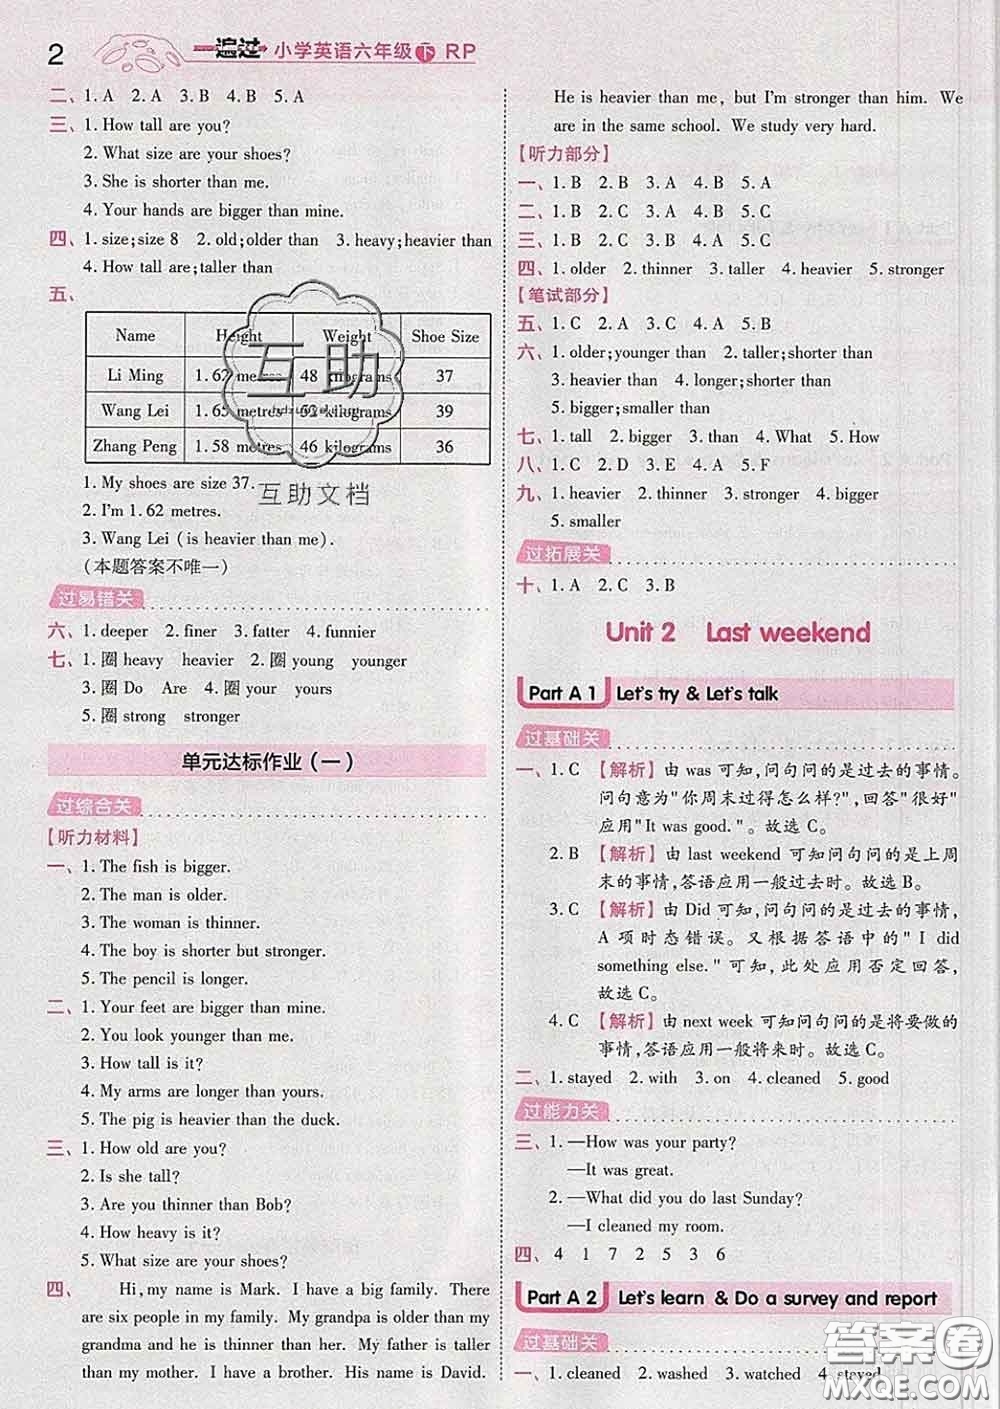 2
一遍过 小学英语六年级 下 RP
二、1. A 2. A 3. B 4. B 5. A
三、1. How tall are you?
2. What size are your shoes?
3. She is shorter than me.
4. Your hands are bigger than mine.
四、1. size;size 8 2. old;older than 3. heavy;heavier than
4. How tall are;taller than
五、
Name Height Weight Shoe Size
Li Ming 1. 62 metres 48 kilograms 37
Wang Lei 1. 65 metres 52 kilograms 39
Zhang Peng 1. 58 metres 46 kilograms 36
互助
互助文档
1. My shoes are size 37.
2. I'm 1. 62 metres.
3. Wang Lei (is heavier than me).
(本题答案不唯一)
过易错关
六、1. deeper 2. finer 3. fatter 4. funnier
七、1. 圈 heavy heavier 2. 圈 young younger
3. 圈 Do Are 4. 圈 your yours
5. 圈 strong stronger
单元达标作业(一)
过综合关
【听力材料】
一、1. The fish is bigger.
2. The man is older.
3. The woman is thinner.
4. The boy is shorter but stronger.
5. The pencil is longer.
二、1. Your feet are bigger than mine.
2. You look younger than me.
3. How tall is it?
4. My arms are longer than yours.
5. The pig is heavier than the duck.
三、1. How old are you?
2. Is she tall?
3. Are you thinner than Bob?
4. How heavy is it?
5. What size are your shoes?
四、 Hi, my name is Mark. I have a big family. There
are six people in my family. My grandpa is older than my
grandma and my grandma is shorter than him. My father is
thin than my mother. I have a brother. His name is David.
He is heavier than me, but I'm stronger than him. We
are in the same school. We study very hard.
【听力部分】
一、1. B 2. B 3. A 4. B 5. A
二、1. B 2. C 3. A 4. B 5. C
三、1. B 2. C 3. A 4. B 5. C
四、1. older 2. thinner 3. taller 4. heavier 5. stronger
【笔试部分】
五、1. C 2. A 3. C 4. A 5. B
六、1. older;younger than 2. taller;shorter than
3. heavier than 4. longer;shorter than
5. bigger;smaller than
七、1. tall 2. bigger 3. than 4. What 5. How
八、1. C 2. D 3. E 4. A 5. F
九、1. heavier 2. thinner 3. stronger 4. bigger
5. smaller
过拓展关
十、1. A 2. C 3. B
Unit 2 Last weekend
Part A 1 Let's try & Let's talk
过基础关
一、1. C 【解析】由 was 可知,问句问的是过去的事情。
问句意为"你周末过得怎么样?",回答"很好"
应用"It was good. "。故选 C。
2. B 【解析】由 last weekend 可知问句问的是上周
末的事情,答语应用一般过去时。故选 B。
3. C 【解析】由 Did 可知,问句问的是过去的事情,
A 项时态错误。又根据答语中的" I did
something else. "可知,此处应用否定回答。
故选 C。
4. C 【解析】由 next week 可知问句问的是将要做的
事情,答语应用一般将来时。故选 C。
二、1. stayed 2. with 3. on 4. cleaned 5. good
过能力关
三、1. —How was your party?
—It was great.
2. —What did you do last Sunday?
—I cleaned my room.
四、4 1 7 2 5 3 6
Part A 2 Let's learn & Do a survey and report
过基础关
一、1. cleaned 2. washed 3. watched 4. stayed
答案圈
MXQE.COM